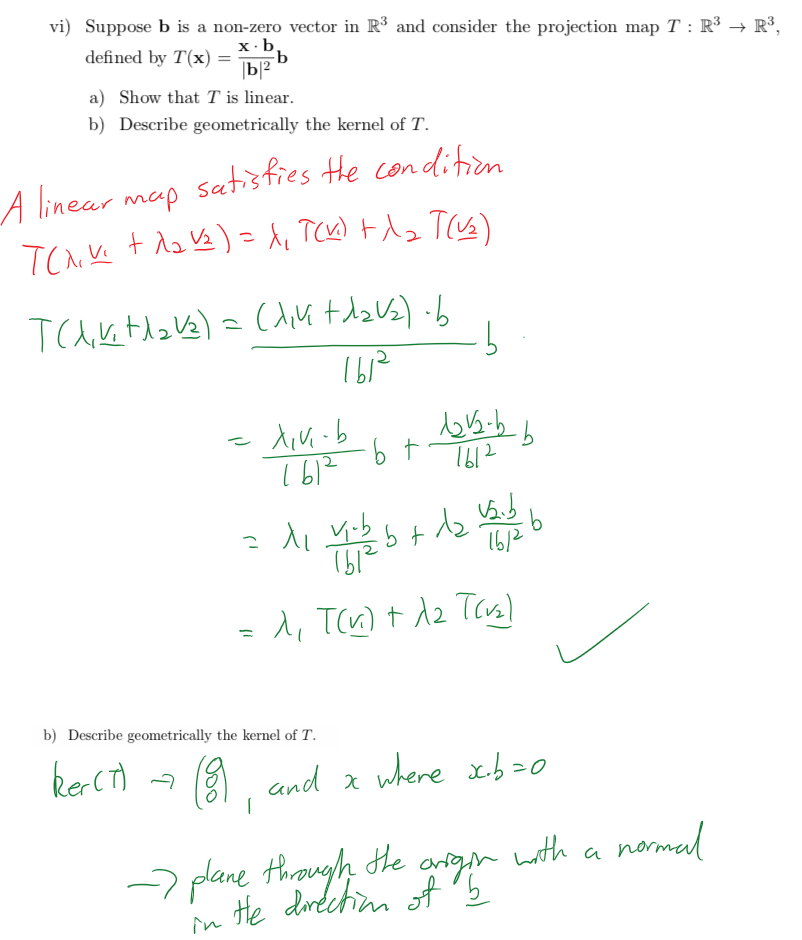 vi) Suppose b is a non-zero vector in ℝ³ and consider the projection map T : ℝ³ → ℝ³,
defined by T(x) = (x · b)/|b|² b
a) Show that T is linear.
b) Describe geometrically the kernel of T.
A linear map satisfies the condition
T(λ₁v₁ + λ₂v₂) = λ₁ T(v₁) + λ₂ T(v₂)
T(λ₁v₁+λ₂v₂) = ((λ₁v₁ + λ₂v₂) · b)/|b|² b
= (λ₁v₁·b)/|b|² b + (λ₂v₂·b)/|b|² b
= λ₁ (v₁·b)/|b|² b + λ₂ (v₂·b)/|b|² b
= λ₁ T(v₁) + λ₂ T(v₂) ✓
b) Describe geometrically the kernel of T.
ker(T) → (0 0 0), and x where x.b=0
→ plane through the origin with a normal
in the direction of b